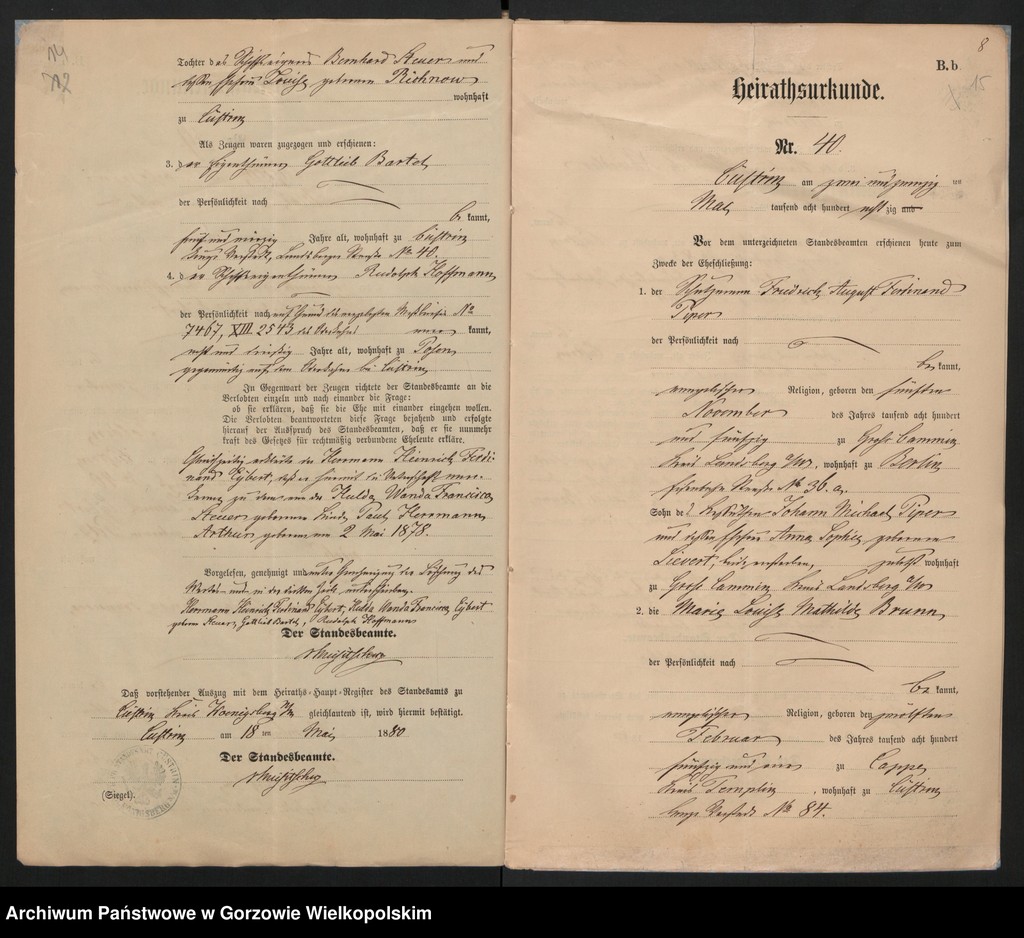 14
Tochter des Schiffseigners Bernhard Steuer und
dessen Ehefrau Louise geborenen Richnow
wohnhaft
zu Cüstrin
Als Zeugen waren zugezogen und erschienen:
3. der Eigenthümer Gottlieb Bartel
der Persönlichkeit nach
be kannt,
fünf und vierzig Jahre alt, wohnhaft zu Cüstrin
kurze Vorstadt, Landsberger Straße No 40.
4. der Schiffseigenthümer Rudolph Hoffmann
der Persönlichkeit nach auf Grund des vorgelegten No
7467, XIII 2543 kannt,
acht und dreißig Jahre alt, wohnhaft zu Posen
gegenwärtig auf dem bei Cüstrin
In Gegenwart der Zeugen richtete der Standesbeamte an die
Verlobten einzeln und nach einander die Frage:
ob sie erklären, daß sie die Ehe mit einander eingehen wollen.
Die Verlobten beantworteten diese Frage bejahend und erfolgte
hierauf der Ausspruch des Standesbeamten, daß er sie nunmehr
kraft des Gesetzes für rechtmäßig verbundene Eheleute erkläre.
Gleichzeitig erklärte der Herrmann Heinrich Ferdi-
nand Eybert, daß er hiermit die Vaterschaft aner-
kenne zu dem von der Hulda Wanda Francisca
Steuer geborenen Kinde Paul Herrmann
Arthur geboren am 2 Mai 1878.
Vorgelesen, genehmigt und unter Genehmigung der Löschung des
Wortes und in der dritten Zeile unterschrieben
Herrmann Heinrich Ferdinand Eybert, Hulda Wanda Francisca Eybert
geborene Steuer, Gottlieb Bartel, Rudolph Hoffmann
Der Standesbeamte.
Daß vorstehender Auszug mit dem Heiraths-Haupt-Register des Standesamts zu
Cüstrin Kreis Koenigsberg N/M gleichlautend ist, wird hiermit bestätigt.
Cüstrin am 18 ten Mai 1880
Der Standesbeamte.
(Siegel).
8
B.b
15
Heirathsurkunde.
Nr. 40.
Cüstrin am zwei und zwanzig ten
Mai tausend acht hundert acht zig und
Vor dem unterzeichneten Standesbeamten erschienen heute zum
Zwecke der Eheschließung:
1. der Schutzmann Friedrich August Ferdinand
Piper
der Persönlichkeit nach
be kannt,
evangelischer Religion, geboren den fünften
November des Jahres tausend acht hundert
und fünfzig zu Groß Cammin
Kreis Landsberg a/W, wohnhaft zu Berlin
Straße No 36. a.
Sohn des Johann Michael Piper
und dessen Ehefrau Anna Sophie geborenen
Sievert, beide verstorben, zuletzt wohnhaft
zu Groß Cammin Kreis Landsberg a/W
2. die Marie Louise Mathilde Brunn
der Persönlichkeit nach
be kannt,
evangelischer Religion, geboren den zwölften
Februar des Jahres tausend acht hundert
fünfzig und eins zu Cappe
Kreis Templin, wohnhaft zu Cüstrin
kurze Vorstadt No 84.
Archiwum Państwowe w Gorzowie Wielkopolskim